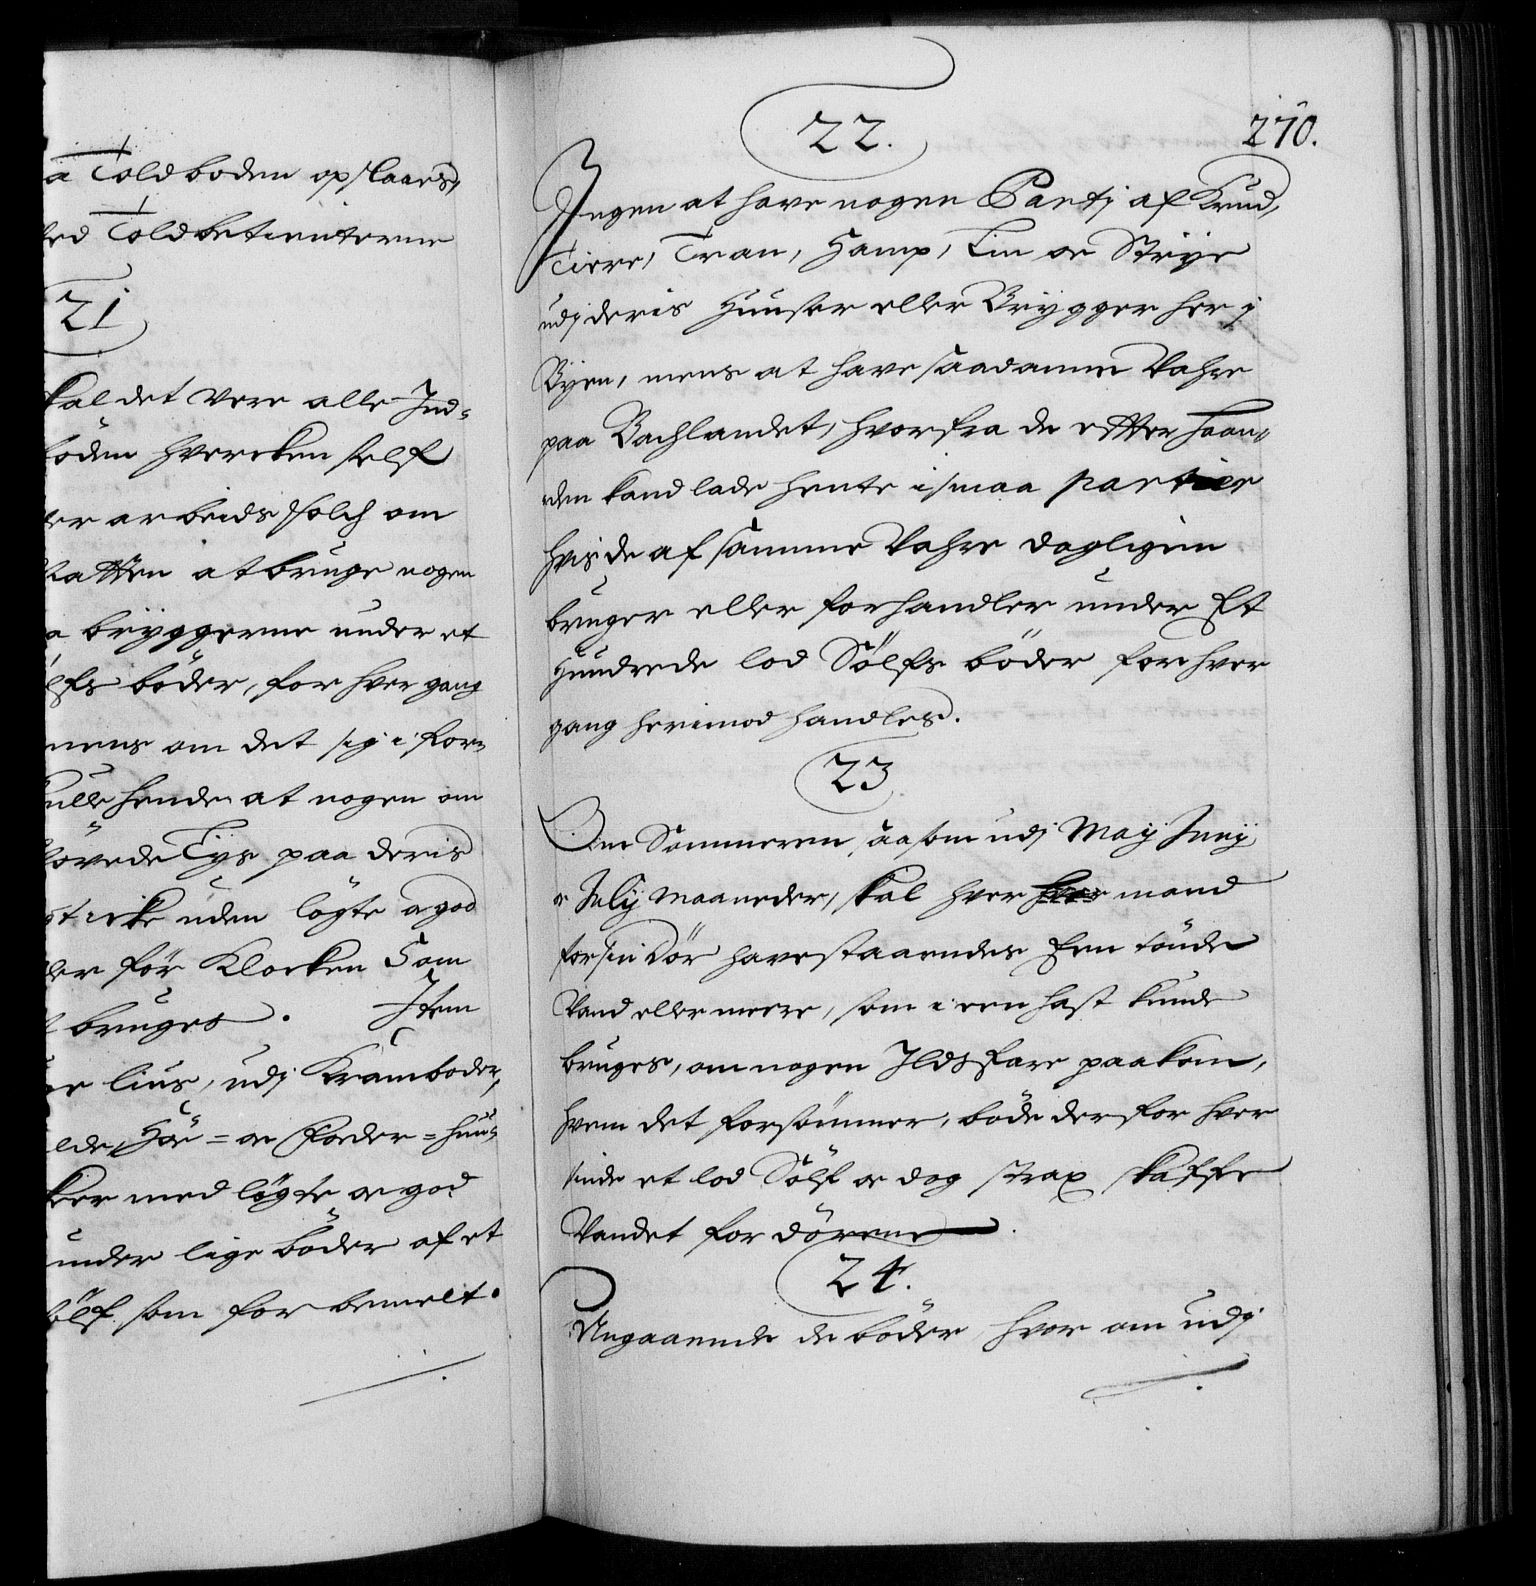 a Toldboden opslaaes,
ed Toldbetienterne
21
kal det Vere alle Ind-
öden hvercken self
er arbeids folch om
Natten at bruge nogen
a bryggerne under et
lfs böder, for hver gang
mens om det sig i for-
ulle hende at nogen om
övede Lys paa deris
stercke uden lögte og god
er för Klocken 5 om
bruges. Item
ge lius, udj Kramboder,
lde, Höe= oc Foeder=huu-
ker med lögte oc god
under lige böder af et
ölf som for bemelt.
270.
22.
Ingen at have nogen Partj af Krud,
Tiere, Tran, Hamp, Lin oc Strye
udj deris Huuser eller Brygger her j
Byen, mens at have saadanne Vahre
paa Bachlandet, hvorfra de effter haan-
den kand lade hente i smaa partier
hvis de af samme Vahre dagligen
bruger eller forhandler under Et
Hundrede lod Sölfs böder for hver
gang herimod handles.
23
Om Sommeren, saasom udj Maÿ Junÿ
oc Julÿ maaneder, skal hver hver mand
for sin Dör have staaendes Een tönde
Vand eller meere, som i een hast kunde
bruges, om nogen Ilds fare paakom,
hvem det forsömmer, böde der for hver
sinde et lod Sölf oc dog strax skaffe
Vandet for dörene.
24.
Angaaende de böder hvor om udj